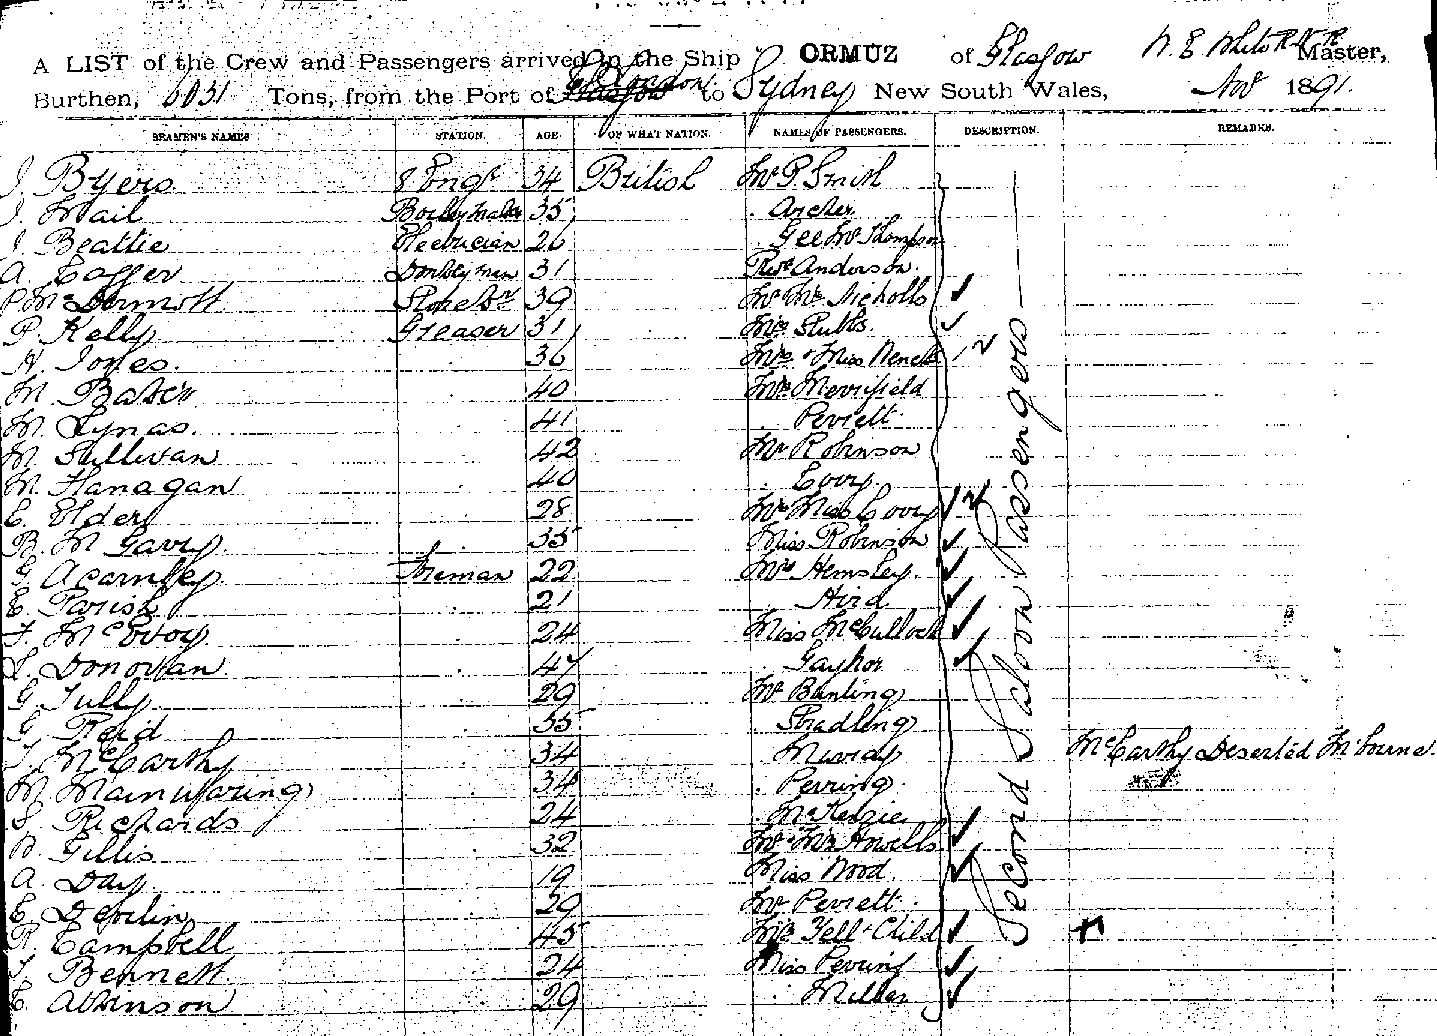 A LIST of the Crew and Passengers arrived in the Ship ORMUZ of Glasgow Master,
Burthen, 6031 Tons, from the Port of London to Sydney New South Wales, Nov 1891.
SEAMEN'S NAMES STATION. AGE. OF WHAT NATION. NAMES OF PASSENGERS. DESCRIPTION. REMARKS.
J. Byers 8 Engr 34 British Mr P. Smith
J. 35 Archer
J. Beattie Electrician 26 Thompson
A. Donkeyman 31 Revd Anderson
P. McDermott 39 Mr Mrs Nicholls
P. Kelly Greaser 31 Mrs Stubbs.
H. Jones. 36 Mrs & Miss
M. 40 Mrs Merrifield
M. Lynas. 41 Perrett
M. Sullivan 42 Mr Robinson
M. Flanagan 40
E. Elder 28 Mrs Miss
B. McGarry 35 Miss Robinson
G. Acarnley Fireman 22 Mrs Hemsley
E. Parish 21 Hird
F. McEvoy 24 Miss McCullock
Donovan 47 Gaynor
G. Tully 29 Mr Bunting
G. Reid 35 Stradling
T. McCarthy 34 McCarthy Deserted
M. Mainwaring 34 Perring
S. Richards 24 McKenzie
B. Gillis 32 Mr Mrs Howells
A. Day 19 Miss Wood.
E. Devlin 29 Mr Perrett
R. Campbell 45 Mrs Fell & Child
T. Bennett 24 Miss Perring
E. Atkinson 29 Miller
Second Saloon Passengers